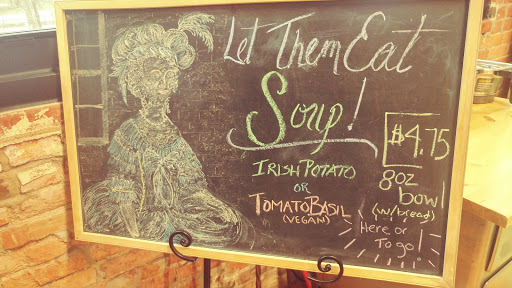 Let Them Eat
Soup!
Irish Potato
or
Tomato Basil
(Vegan)
$4.75
8oz
bowl
(w/bread)
Here or
To go!